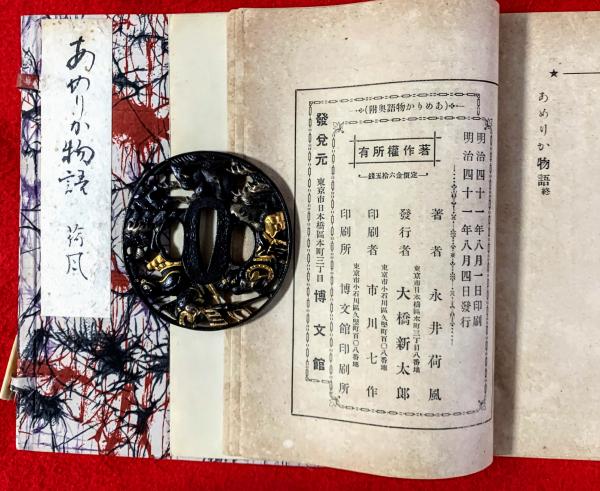 あめりか物語 荷風
あめりか物語 終
(あめりか物語奥附)
明治四十一年八月一日印刷
明治四十一年八月四日發行
著作權所有
定價金六拾五錢
著者 永井荷風
東京市日本橋區本町三丁目八番地
發行者 大橋新太郎
東京市小石川區久堅町百〇八番地
印刷者 市川七作
東京市小石川區久堅町百〇八番地
印刷所 博文館印刷所
發兌元 東京市日本橋區本町三丁目 博文館